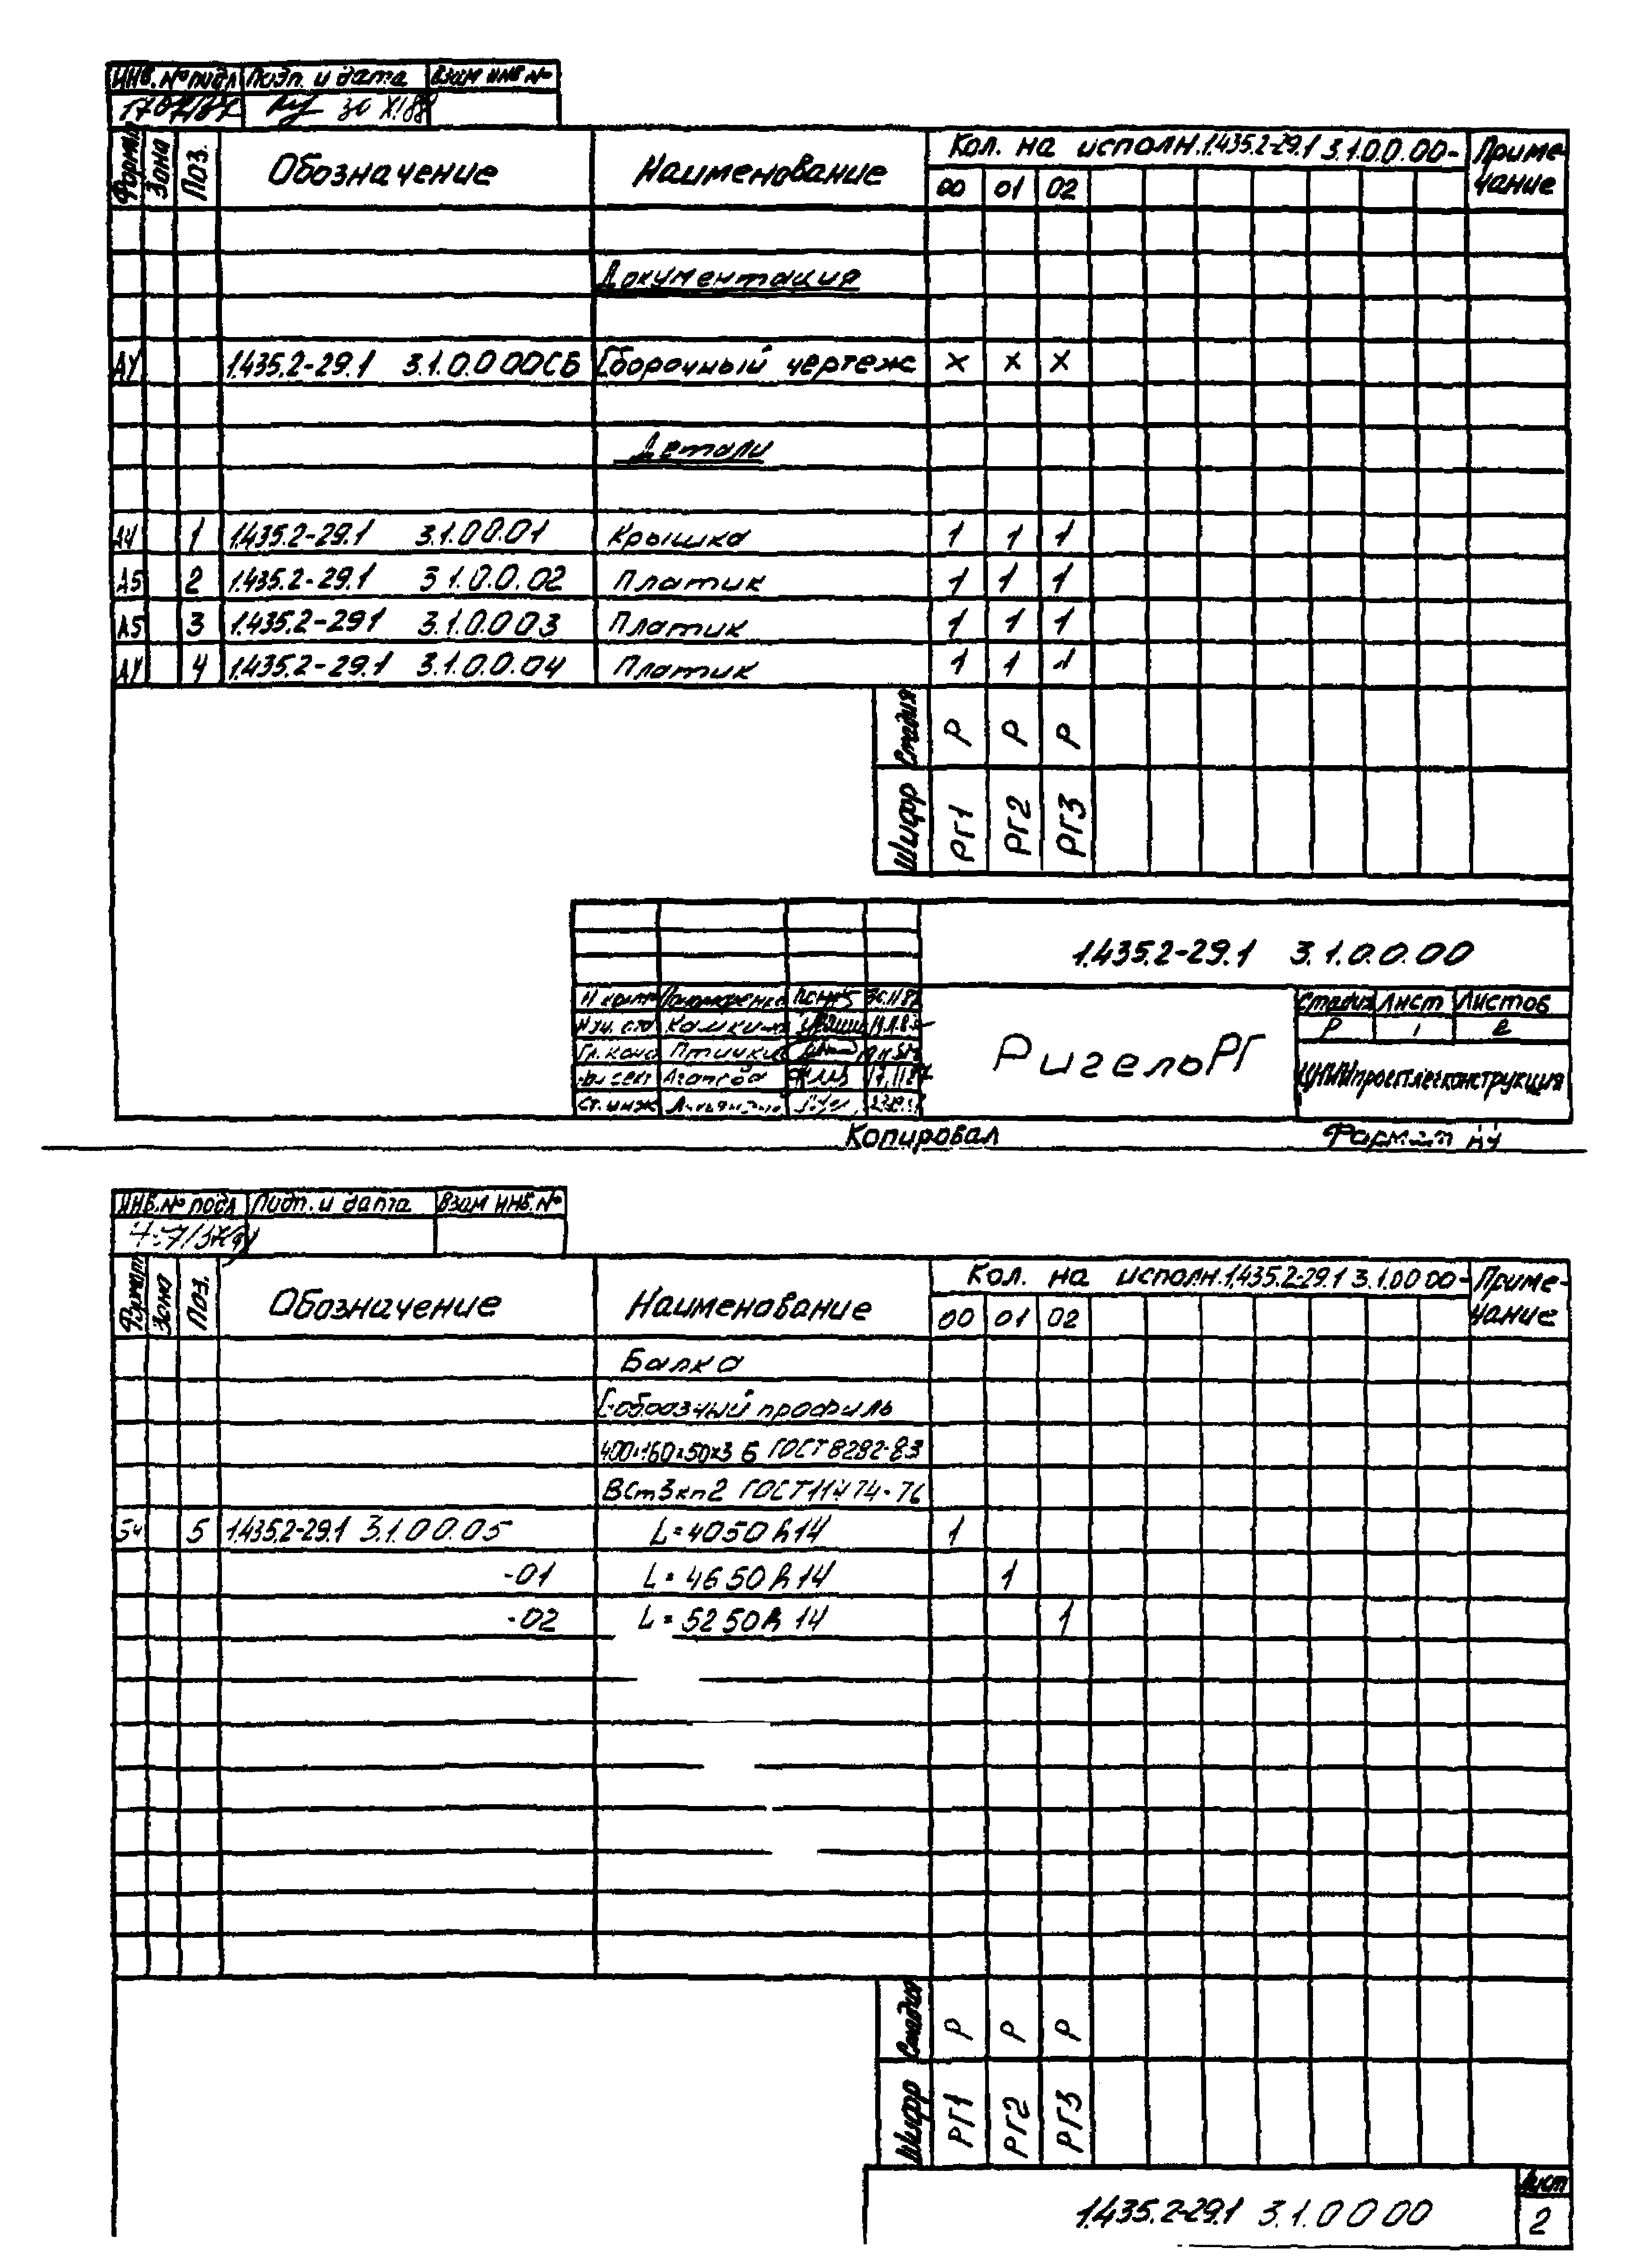 Инв. № подл Подп. и дата Взам инв №
30 XI 88
Формат Зона Поз. Обозначение Наименование Кол. на исполн. 1.435.2-29.1 3.1.0.0.00- Приме-
чание
00 01 02
Документация
А4 1.435.2-29.1 3.1.0.0 00СБ Сборочный чертеж х х х
Детали
А4 1 1.435.2-29.1 3.1.0 0.01 Крышка 1 1 1
А5 2 1.435.2-29.1 3 1.0.0.02 Платик 1 1 1
А5 3 1.435.2-29 1 3.1.0.0 03 Платик 1 1 1
А4 4 1.435.2-29.1 3.1.0.0.04 Платик 1 1 1
Стадия Р Р Р
Шифр РГ1 РГ2 РГ3
1.435.2-29.1 3.1.0.0.00
Ригель РГ
Стадия Лист Листов
Р 1 2
ЦНИИпроектлегконструкция
Н контр Пономаренко
Нач. отд
Гл. конс
Ст. инж
Копировал Формат А4
Инв. № подл Подп. и дата Взам инв. №
Формат Зона Поз. Обозначение Наименование Кол. на исполн. 1.435.2-29.1 3.1.0 0 00- Приме-
чание
00 01 02
Балка
С-образный профиль
400×160×50×3 Б ГОСТ 8282-83
ВСт3кп2 ГОСТ 11474-76
БЧ 5 1.435.2-29.1 3.1.0 0.05 L=4050 h 14 1
-01 L=4650 h 14 1
-02 L=5250 h 14 1
Стадия Р Р Р
Шифр РГ1 РГ2 РГ3
1.435.2-29.1 3.1.0 0 00
Лист
2